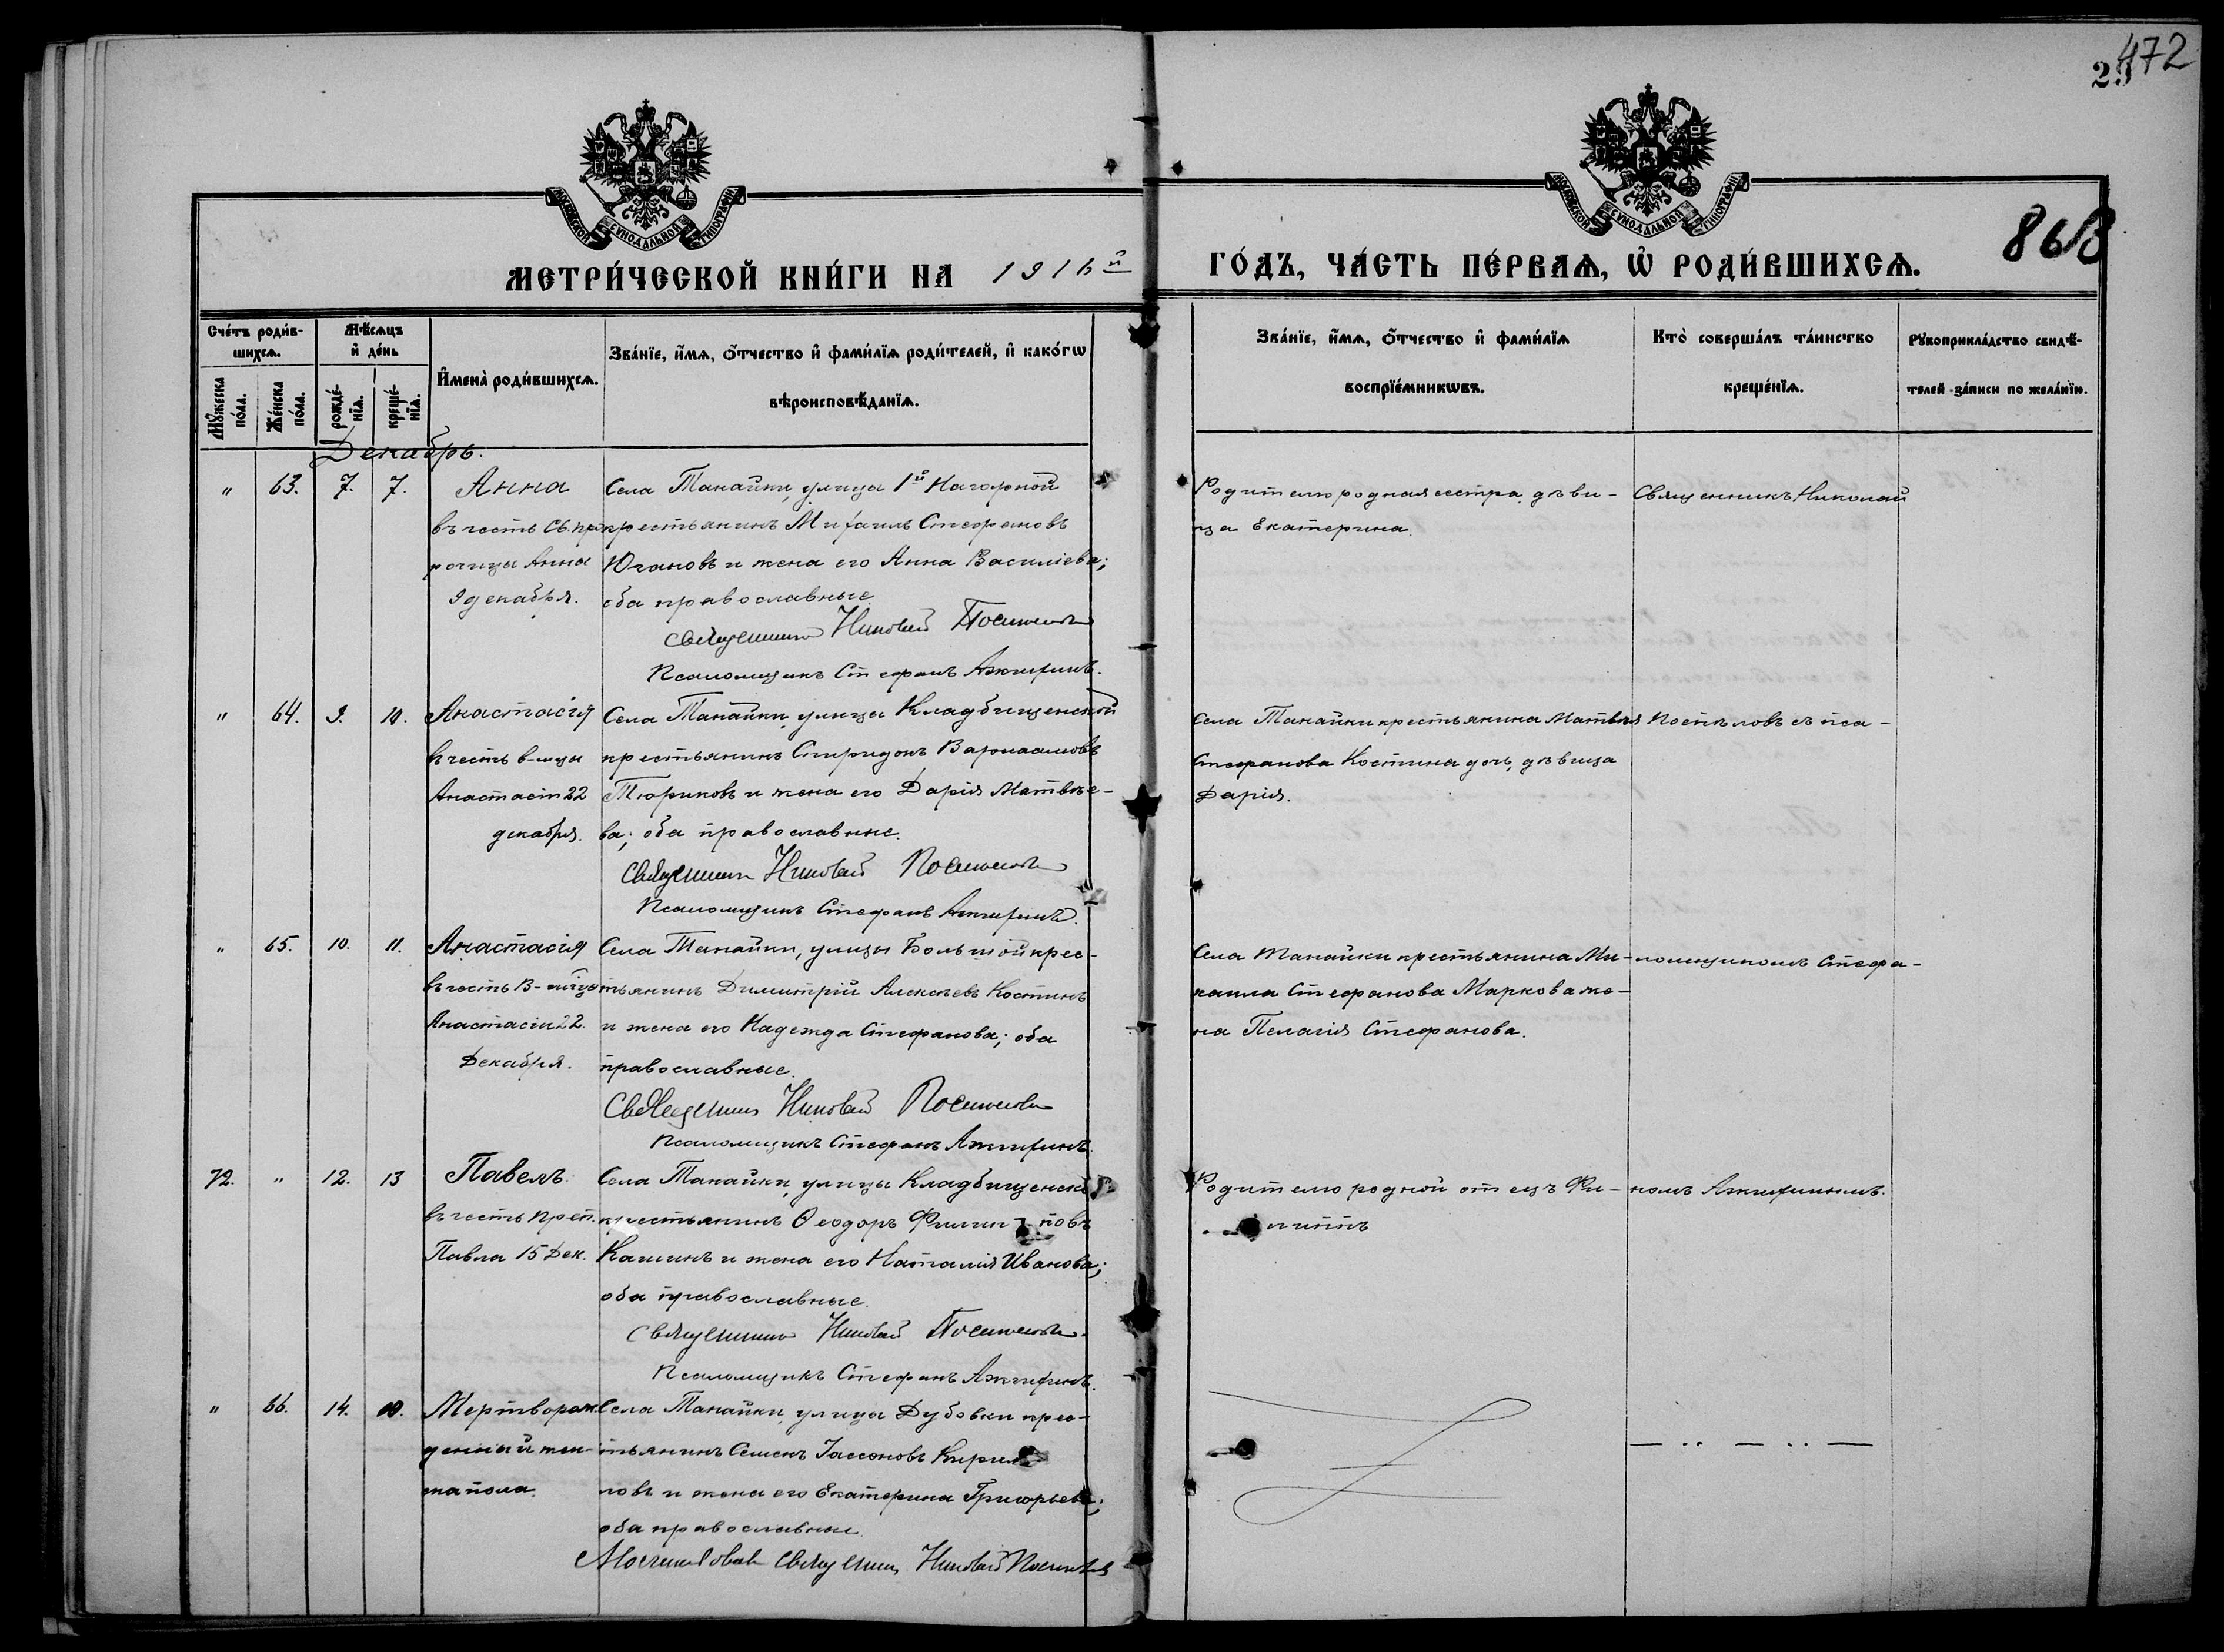 472
29
МОСКОВСКОЙ СѴНОДАЛЬНОЙ ТИПОГРАФІИ
МОСКОВСКОЙ СѴНОДАЛЬНОЙ ТИПОГРАФІИ
868
МЕТРИ́ЧЕСКОЙ КНИ́ГИ НА 1916й
ГО́ДЪ, ЧА́СТЬ ПЕ́РВАѦ, Ѡ҆ РОДИ́ВШИХСѦ.
Сче́тъ роди́в-
шихсѧ.
Мꙋ́жеска
по́ла.
Же́нска
по́ла.
Мѣ́сѧцъ
и҆ де́нь
рожде́-
нїѧ.
креще́-
нїѧ.
И҆мена̀ роди́вшихсѧ.
Зва́нїе, и҆́мѧ, ѻ҆́тчество и҆ фами́лїѧ роди́телей, и҆ како́гѡ
вѣроисповѣ́данїѧ.
Зва́нїе, и҆́мѧ, ѻ҆́тчество и҆ фами́лїѧ
воспрїе́мникѡвъ.
Кто̀ соверша́лъ та́инство
креще́нїѧ.
Рꙋкоприкла́дство свидѣ́-
телей за́писи по жела́нїю.
Декабрь.
" 63. 7. 7.
Анна
въ честь Св. про
рочицы Анны
9 декабря.
Села Танайки, улицы 1й Нагорной
крестьянинъ Михаилъ Стефановъ
Югановъ и жена его Анна Василіева;
оба православные.
Священникъ Николай Поспеловъ
Псаломщикъ Стефанъ Ажигинъ.
Родителю родная сестра, дѣви-
ца Екатерина.
Священникъ Николай
" 64. 9. 10.
Анастасія
въ честь в-мцы
Анастасіи 22
декабря.
Села Танайки, улицы Кладбищенской
крестьянинъ Спиридонъ Варлаамовъ
Тюриковъ и жена его Дарія Матвѣе-
ва; оба православные.
Священникъ Николай Поспеловъ
Псаломщикъ Стефанъ Ажигинъ.
Села Танайки крестьянина Матвѣя
Стефанова Костина дочь, дѣвица
Дарія.
Поспѣловъ съ пса-
" 65. 10. 11.
Анастасія
въ честь В-мчцы
Анастасіи 22.
Декабря.
Села Танайки, улицы Большой крес-
тьянинъ Димитрій Алексѣевъ Костинъ
и жена его Надежда Стефанова; оба
православные.
Священникъ Николай Поспеловъ
Псаломщикъ Стефанъ Ажигинъ.
Села Танайки крестьянина Ми-
хаила Стефанова Маркова же-
на Пелагія Стефанова.
ломщикомъ Стефа-
72. " 12. 13
Павелъ.
въ честь Преп.
Павла 15 Дек.
Села Танайки, улицы Кладбищенской
крестьянинъ Ѳеодоръ Филип-повъ
Кашинъ и жена его Наталія Иванова;
оба православные.
Священникъ Николай Поспеловъ.
Псаломщикъ Стефанъ Ажигинъ.
Родителю родной отецъ Фи-
липпъ
номъ Ажигинымъ.
" 66. 14.
Мертворож-
денный жен-
ска пола.
Села Танайки, улицы Дубовки крес-
тьянинъ Семенъ Іассоновъ Кирил-
ловъ и жена его Екатерина Григорьева;
оба православные.
священникъ Николай Поспеловъ